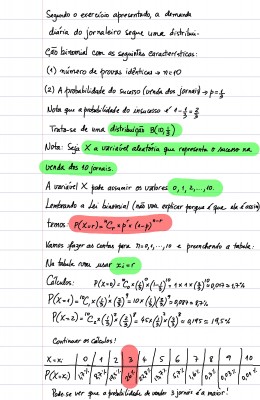 Segundo o exercício apresentado, a demanda
diária do jornaleiro segue uma distribui-
ção binomial com as seguintes características:
(1) número de provas idênticas → n=10
(2) A probabilidade do sucesso (venda dos jornais) → p=1/3
Note que a probabilidade do insucesso é 1-1/3=2/3
Trata-se de uma distribuição B(10,1/3)
Nota: Seja X a variável aleatória que representa o sucesso na
venda dos 10 jornais.
A variável X pode assumir os valores 0, 1, 2, ..., 10.
Lembrando a lei binomial (não vou explicar porque é que ela é assim)
temos: P(X=r)=ⁿCᵣ × pʳ × (1-p)ⁿ⁻ʳ
Vamos fazer as contas para r=0,1,...,10 e preenchendo a tabela:
Na tabela vou usar xᵢ=r
Cálculos: P(X=0)=¹⁰C₀×(1/3)⁰×(1-1/3)¹⁰=1×1×(2/3)¹⁰≈0,017=1,7%
P(X=1)=¹⁰C₁×(1/3)¹×(2/3)⁹=10×(1/3)(2/3)⁹≈0,087=8,7%
P(X=2)=¹⁰C₂×(1/3)²×(2/3)⁸=45×(1/3)²×(2/3)⁸≈0,195=19,5%
Continuar os cálculos!
X=xᵢ 0 1 2 3 4 5 6 7 8 9 10
P(X=xᵢ) 1,7%
Pode-se ver que a probabilidade de vender 3 jornais é a maior!